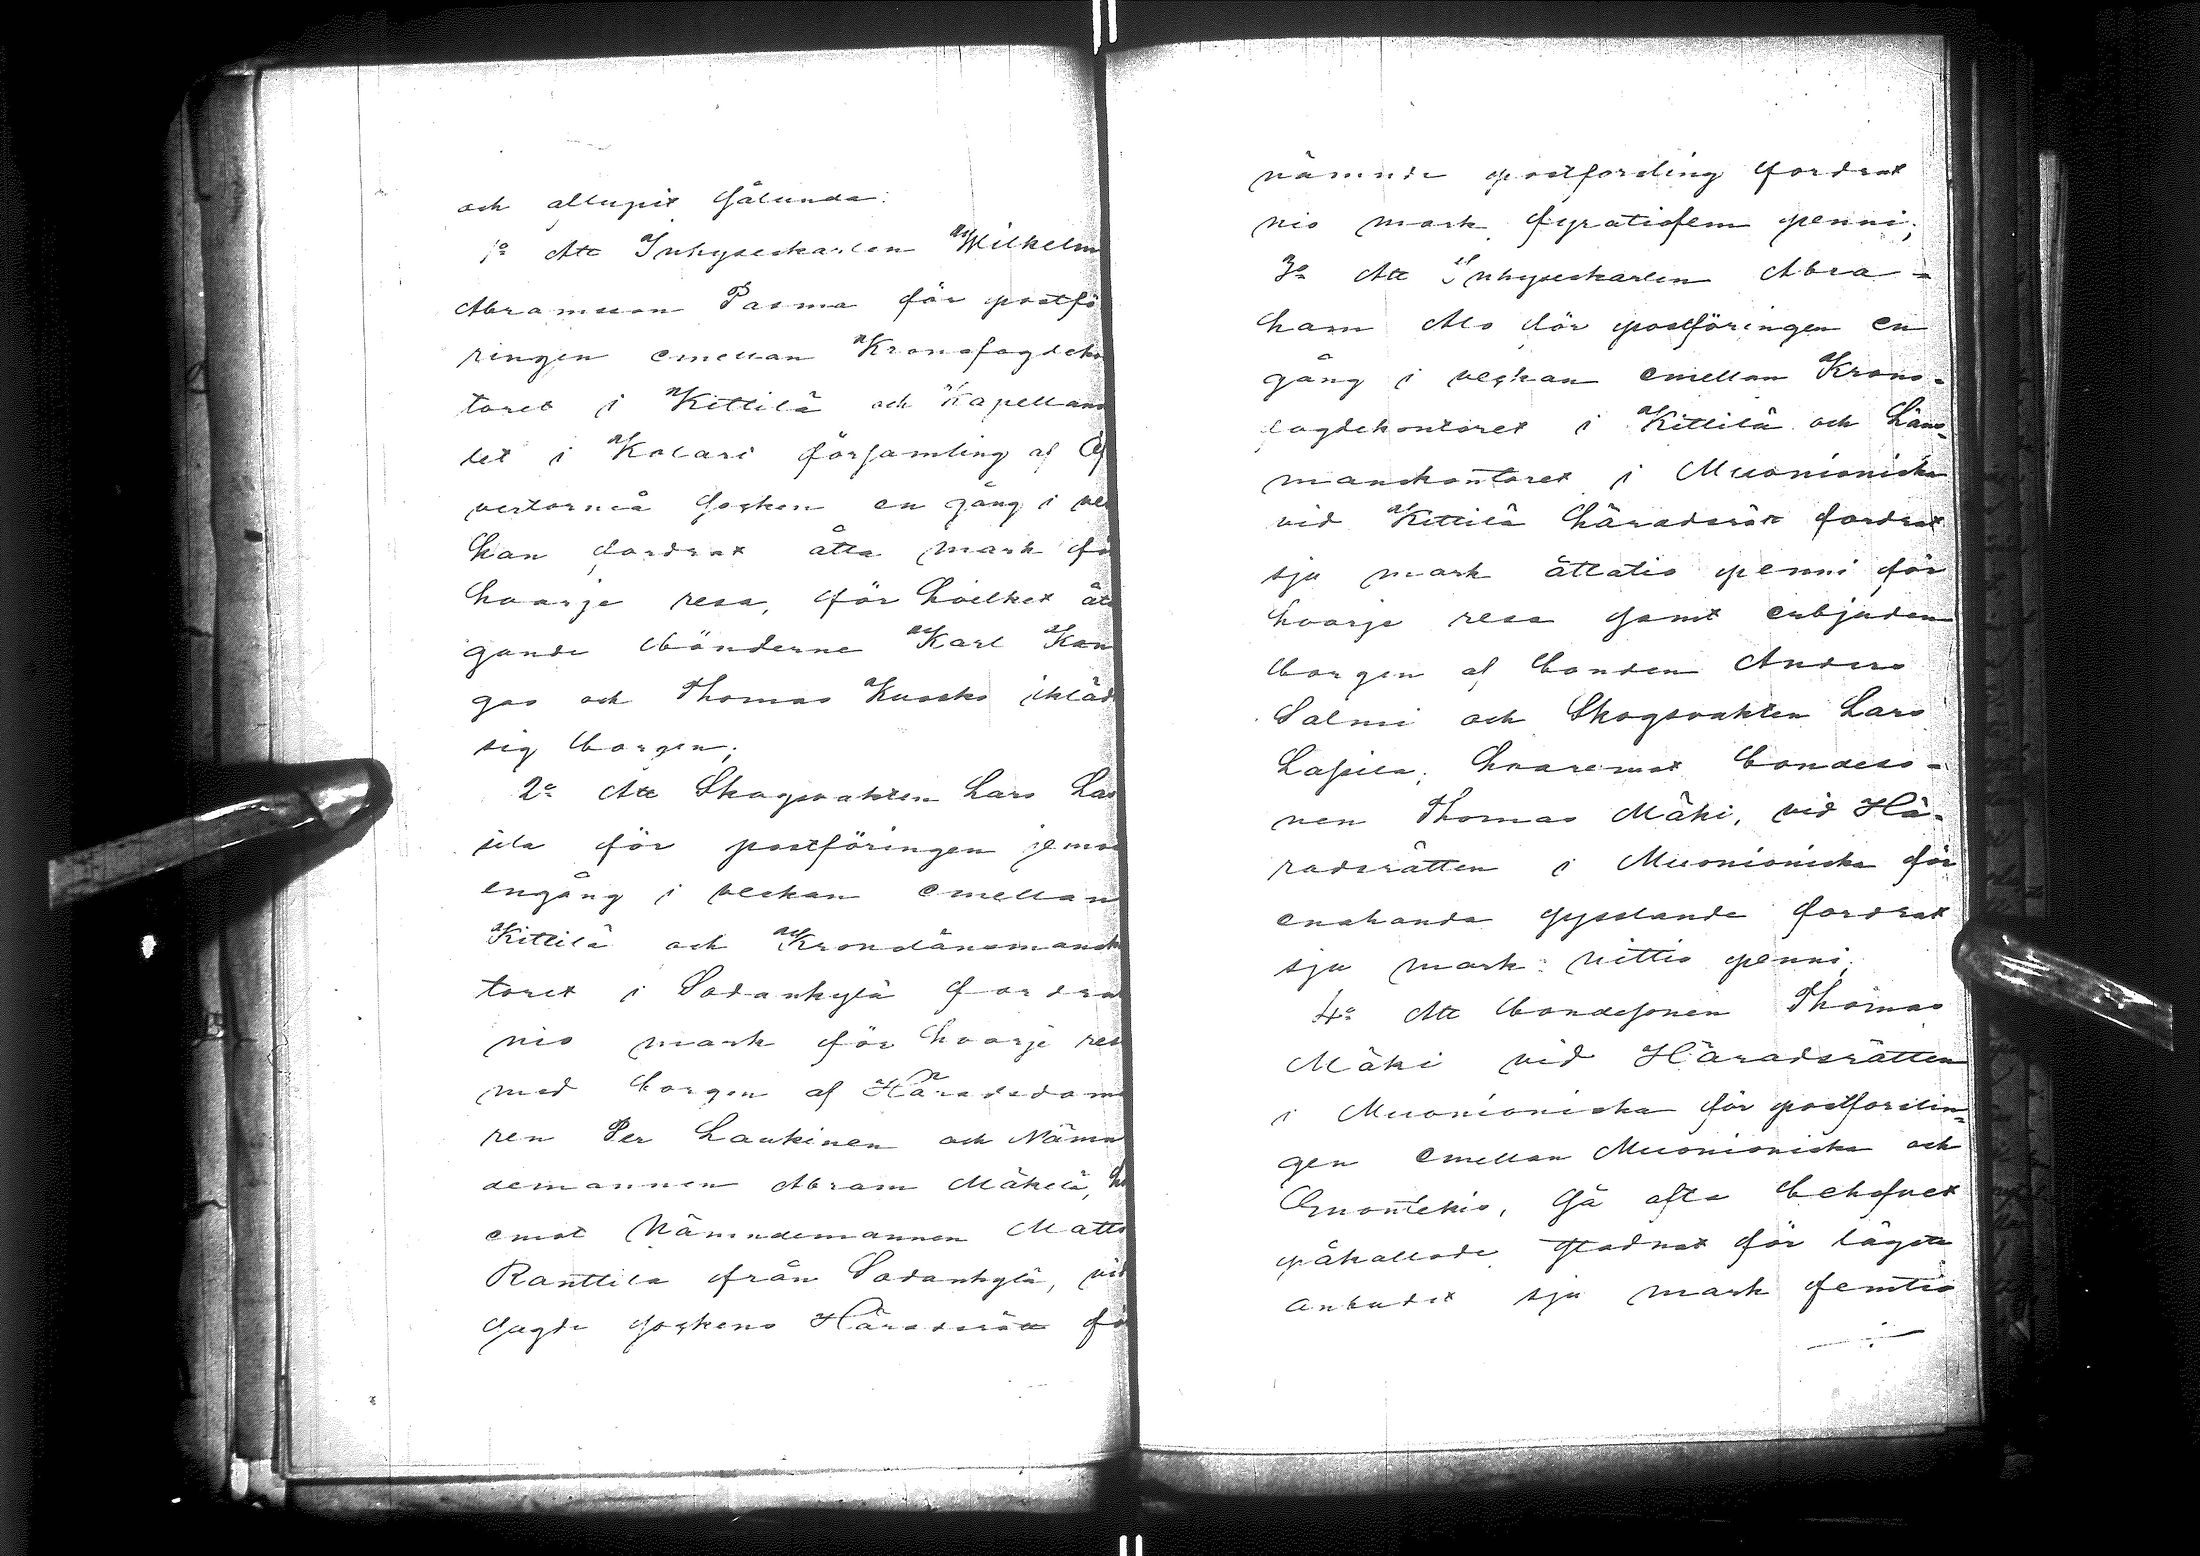 och aflupit sålunda:
1o Att Inhyseskarlen Wilhelm
Abramsson Pasma för postfö
ringen emellan Kronofogdeko
toret i Kittilä och Kapellans
let i Kolari församling af Öf
vertorneå socken en gång i ve
kan fordrat åtta mark fö
hvarje resa, för hvilket åta
gande bönderne Karl Kan
gas och Thomas Kuosko iklädt
sig borgen;
2o Att Skogsvakten Lars Las
sila för postföringen jemv
engång i veckan emellan
Kittilä och Kronolänsmansk
toret i Sodankylä fordrat
nio mark för hvarje resa
med borgen af Häradsdoma
ren Per Laukinen och Nämn
demannen Abram Mäkelä, hv
emot Nämndemannen Matts
Ranttila från Sodankylä, vid
sagde sockens Häradsrätt fö
nämnde postforsling fordrat
nio mark fyratiofem penni;
3o Att Inhyseskarlen Abra-
ham Alo för postföringen en
gång i veckan emellan Krono-
fogdekontoret i Kittilä och Läns-
manskontoret i Muonioniska
vid Kittilä häradsrätt fordrat
sju mark åttatio penni för
hvarje resa samt erbjuden
borgen af bonden Anders
Salmi och Skogsvakten Lars
Lassila; hvaremot bondeso-
nen Thomas Mäki, vid Hä-
radsrätten i Muonioniska för
enahanda sysslande fordrat
sju mark nittio penni;
4o Att bondesonen Thomas
Mäki vid Häradsrätten
i Muonioniska för postforslin-
gen emellan Muonioniska och
Enontekis, så ofta behofvet
påkallade stadnat för lägsta
anbudet sju mark femtio